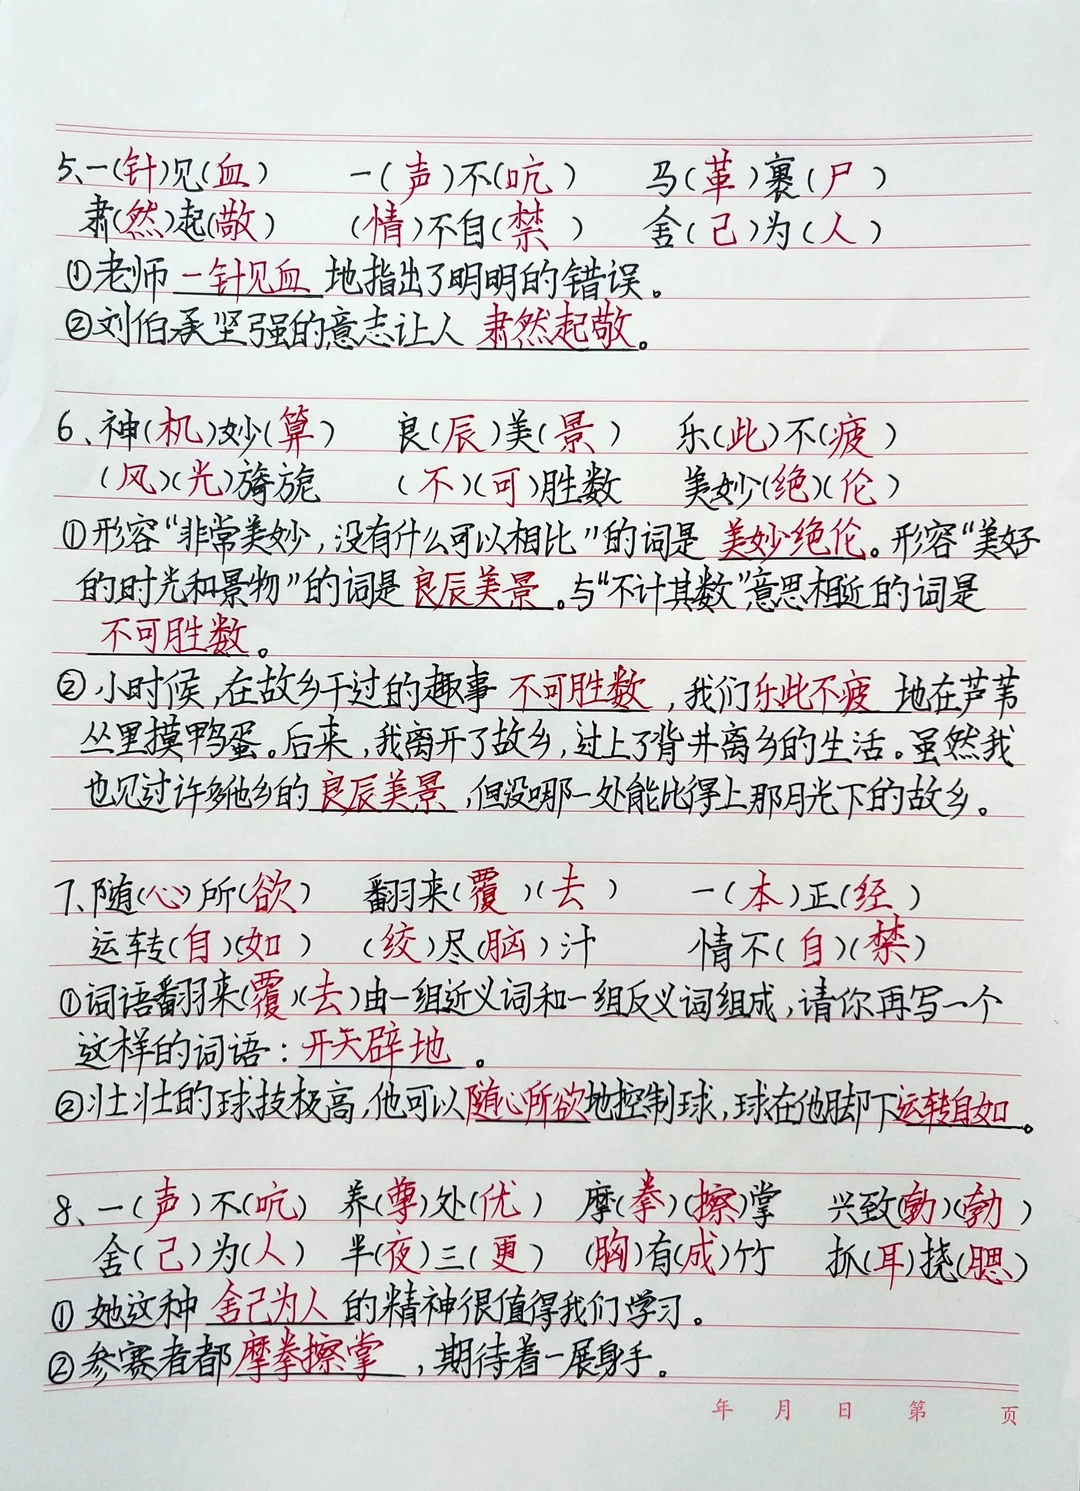 5、一(针)见(血) 一(声)不(吭) 马(革)裹(尸)
肃(然)起(敬) (情)不自(禁) 舍(己)为(人)
①老师一针见血地指出了明明的错误。
②刘伯承坚强的意志让人肃然起敬。
6、神(机)妙(算) 良(辰)美(景) 乐(此)不(疲)
(风)(光)旖旎 (不)(可)胜数 美妙(绝)(伦)
①形容“非常美妙,没有什么可以相比”的词是美妙绝伦。形容“美好
的时光和景物”的词是良辰美景。与“不计其数”意思相近的词是
不可胜数。
②小时候,在故乡干过的趣事不可胜数,我们乐此不疲地在芦苇
丛里摸鸭蛋。后来,我离开了故乡,过上了背井离乡的生活。虽然我
也见过许多他乡的良辰美景,但没哪一处能比得上那月光下的故乡。
7、随(心)所(欲) 翻来(覆)(去) 一(本)正(经)
运转(自)(如) (绞)尽(脑)汁 情不(自)(禁)
①词语翻来(覆)(去)由一组近义词和一组反义词组成,请你再写一个
这样的词语:开天辟地。
②壮壮的球技极高,他可以随心所欲地控制球,球在他脚下运转自如。
8、一(声)不(吭) 养(尊)处(优) 摩(拳)(擦)掌 兴致(勃)(勃)
舍(己)为(人) 半(夜)三(更) (胸)有(成)竹 抓(耳)挠(腮)
①她这种舍己为人的精神很值得我们学习。
②参赛者都摩拳擦掌,期待着一展身手。
年 月 日 第 页